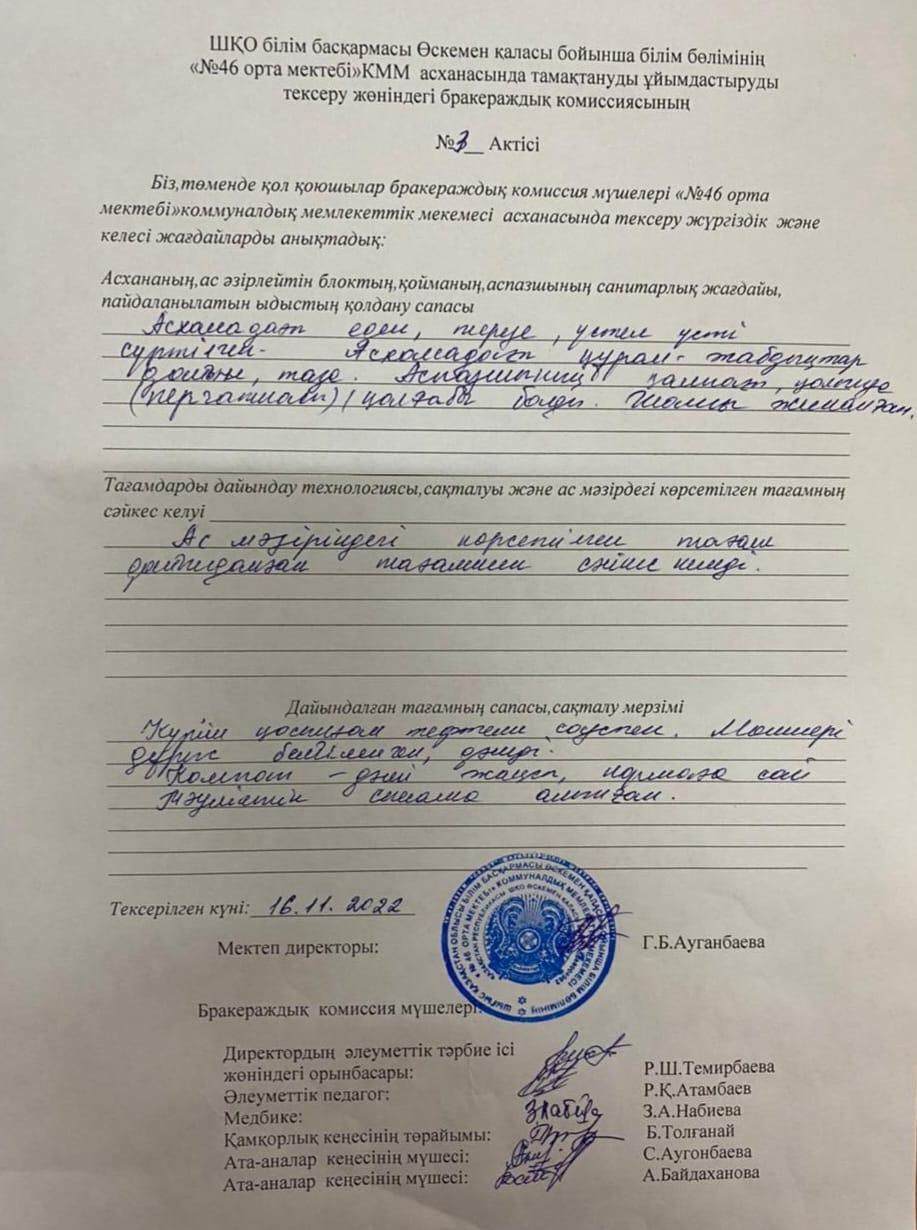 ШҚО білім басқармасы Өскемен қаласы бойынша білім бөлімінің
«№46 орта мектебі»КММ асханасында тамақтануды ұйымдастыруды
тексеру жөніндегі бракераждық комиссиясының
№3__ Актісі
Біз,төменде қол қоюшылар бракераждық комиссия мүшелері «№46 орта
мектебі»коммуналдық мемлекеттік мекемесі асханасында тексеру жүргіздік және
келесі жағдайларды анықтадық:
Асхананың,ас әзірлейтін блоктың,қойманың,аспазшының санитарлық жағдайы,
пайдаланылатын ыдыстың қолдану сапасы
Асханадағы еден, терезе, үстел үсті
сүртілген. Асханадағы құрал-жабдықтар
таза. Аспазшының
(перчаткасы) қолғабы болды. Шашы жиналған.
Тағамдарды дайындау технологиясы,сақталуы және ас мәзірдегі көрсетілген тағамның
сәйкес келуі
Ас мәзіріндегі көрсетілген тағам
дайындалған тағаммен сәйкес келді.
Дайындалған тағамның сапасы,сақталу мерзімі
Күріш қосылған тефтели соуспен. Мөлшері
дұрыс дәмді.
Компот – дәмі жақсы, нормаға сай
Тәуліктік сынама алынған.
Тексерілген күні: 16.11.2022
Мектеп директоры: Г.Б.Ауганбаева
Бракераждық комиссия мүшелері:
Директордың әлеуметтік тәрбие ісі
жөніндегі орынбасары: Р.Ш.Темирбаева
Әлеуметтік педагог: Р.Қ.Атамбаев
Медбике: З.А.Набиева
Қамқорлық кеңесінің төрайымы: Б.Толғанай
Ата-аналар кеңесінің мүшесі: С.Аугонбаева
Ата-аналар кеңесінің мүшесі: А.Байдаханова